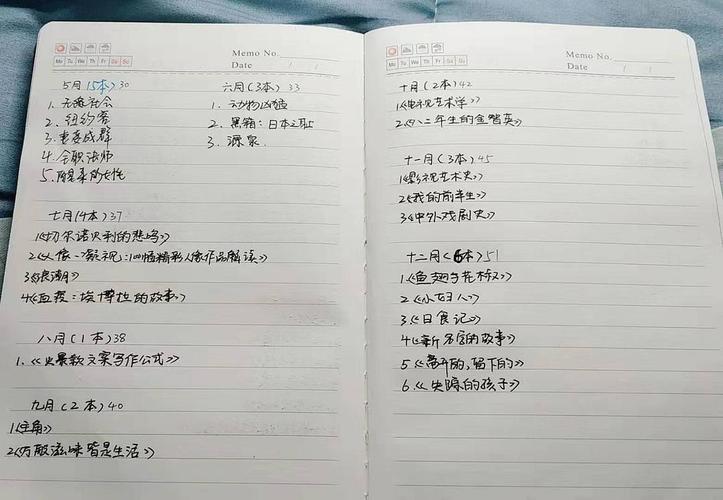 Memo No.
Mo Tu We Th Fr Sa Su
Date / /
5月(5本)30
1. 无缘社会
2. 纽约客
3. 妻妾成群
4. 全职法师
5. 醒来的女性
六月(3本)33
1. 动物凶猛
2. 黑箱:日本之耻
3. 源泉
七月(4本)37
1《切尔诺贝利的悲鸣》
2《人像一凝视:100幅精彩人像作品解读》
3《浪潮》
4《血疫:埃博拉的故事》
八月(1本)38
1.《爆款文案写作公式》
九月(2本)40
1《主角》
2《万般滋味皆是生活》
Memo No.
Mo Tu We Th Fr Sa Su
Date / /
十月(2本)42
1《电视艺术学》
2《八二年生的金智英》
十一月(3本)45
1《影视艺术史》
2《我的前半生》
3《中外戏剧史》
十二月(6本)51
1《鱼翅与花椒》
2《小妇人》
3《日食记》
4《新名字的故事》
5《离开的,留下的》
6.《失踪的孩子》